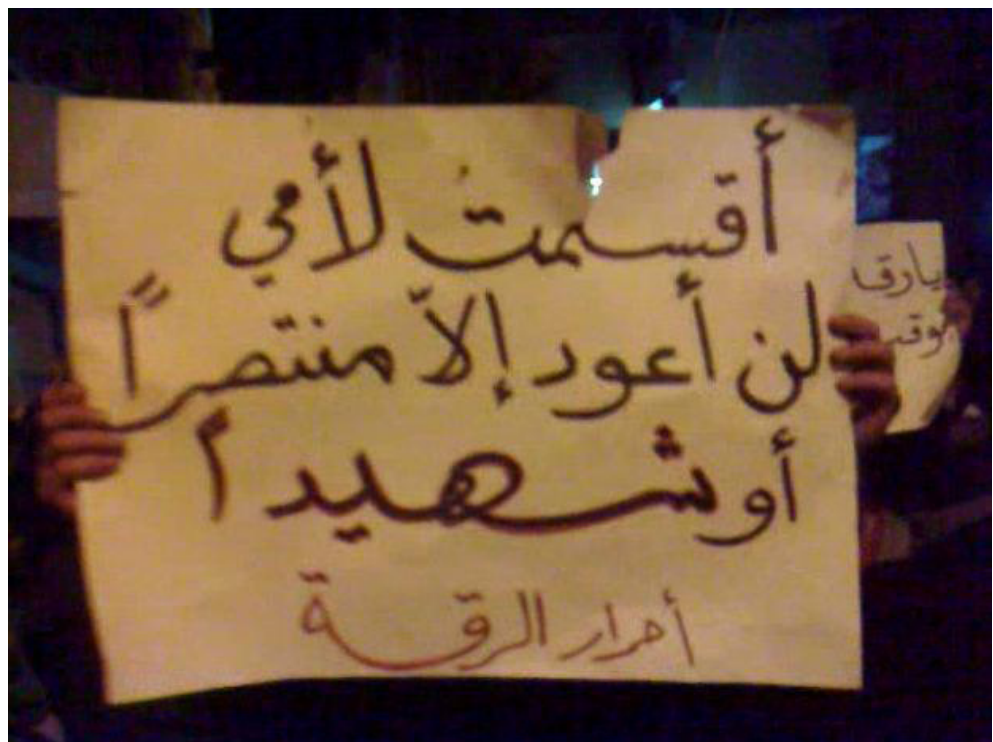 أقسمتُ لأمي
لن أعود إلاّ منتصراً
أو شهيداً
أحرار الرقة